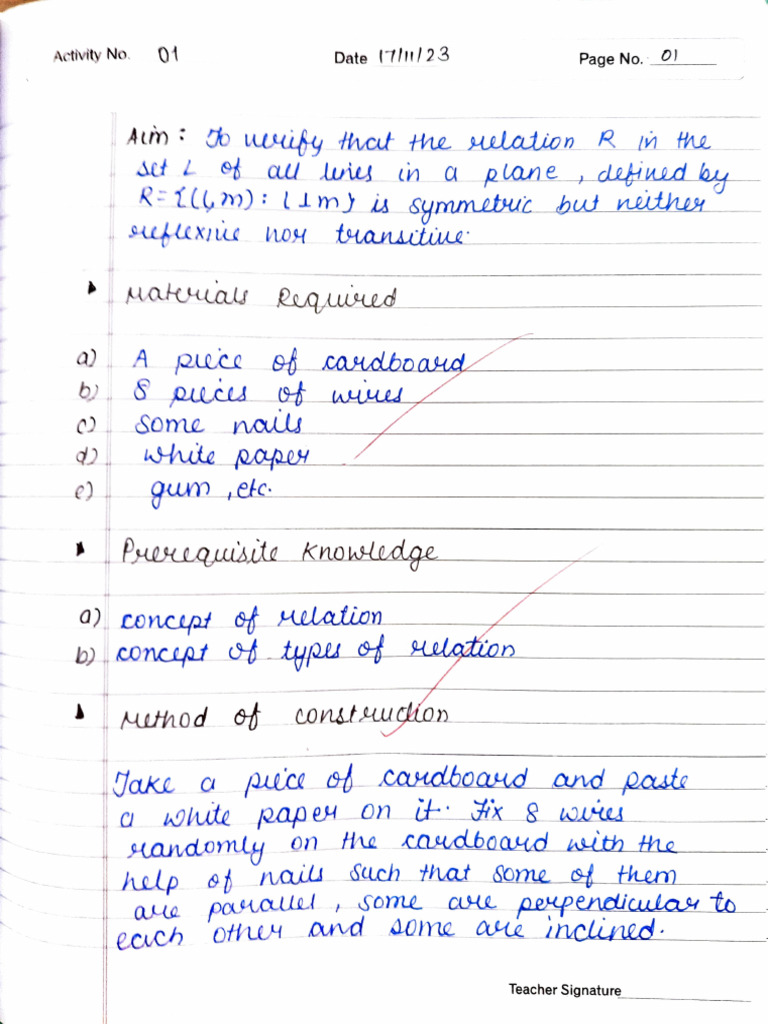 Activity No. 01 Date 17/11/23 Page No. 01
Aim : To verify that the relation R in the
set L of all lines in a plane, defined by
R = {(l, m) : l ⊥ m} is symmetric but neither
reflexive nor transitive.
Materials Required
a) A piece of cardboard
b) 8 pieces of wires
c) some nails
d) white paper
e) gum, etc.
Prerequisite Knowledge
a) concept of relation
b) concept of types of relation
Method of construction
Take a piece of cardboard and paste
a white paper on it. Fix 8 wires
randomly on the cardboard with the
help of nails such that some of them
are parallel, some are perpendicular to
each other and some are inclined.
Teacher Signature